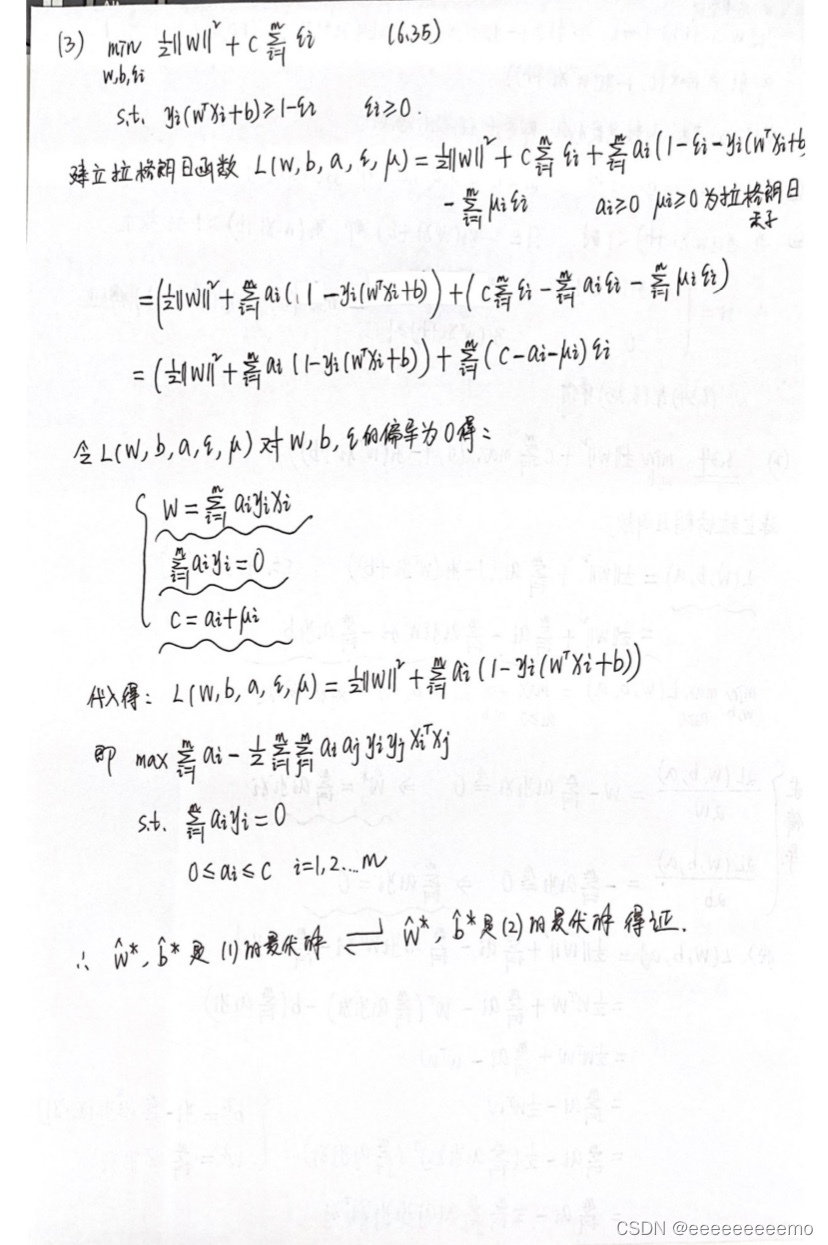 (3) min ½||W||² + C Σᵢ₌₁ᵐ ξi (6.35)
w,b,ξi
s.t. yi(wᵀxi+b) ≥ 1-ξi ξi ≥ 0.
建立拉格朗日函数 L(w, b, a, ξ, μ) = ½||W||² + C Σᵢ₌₁ᵐ ξi + Σᵢ₌₁ᵐ ai(1-ξi-yi(wᵀxi+b
- Σᵢ₌₁ᵐ μiξi ai≥0 μi≥0 为拉格朗日
乘子
= (½||W||² + Σᵢ₌₁ᵐ ai(1-yi(wᵀxi+b)) + (C Σᵢ₌₁ᵐ ξi - Σᵢ₌₁ᵐ aiξi - Σᵢ₌₁ᵐ μiξi)
= (½||W||² + Σᵢ₌₁ᵐ ai (1-yi(wᵀxi+b)) + Σᵢ₌₁ᵐ (C-ai-μi) ξi
令 L(W, b, a, ξ, μ) 对 W, b, ξ 的偏导为0得:
W = Σᵢ₌₁ᵐ aiyixi
Σᵢ₌₁ᵐ aiyi = 0
C = ai+μi
代入得: L(W, b, a, ξ, μ) = ½||W||² + Σᵢ₌₁ᵐ ai (1-yi(wᵀxi+b))
即 max Σᵢ₌₁ᵐ ai - ½ Σᵢ₌₁ᵐ Σⱼ₌₁ᵐ ai aj yi yj xiᵀxj
s.t. Σᵢ₌₁ᵐ aiyi = 0
0 ≤ ai ≤ C i=1,2...m
∴ ŵ*, b̂* 是 (1) 的最优解 ⇌ ŵ*, b̂* 是 (2) 的最优解 得证.
CSDN @eeeeeeeeeemo